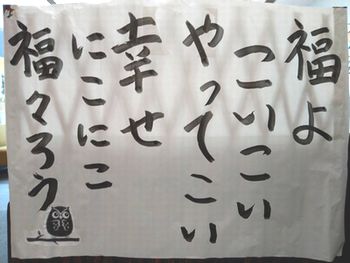 福よ
こいこい
やってこい
幸せ
にこにこ
福々ろう